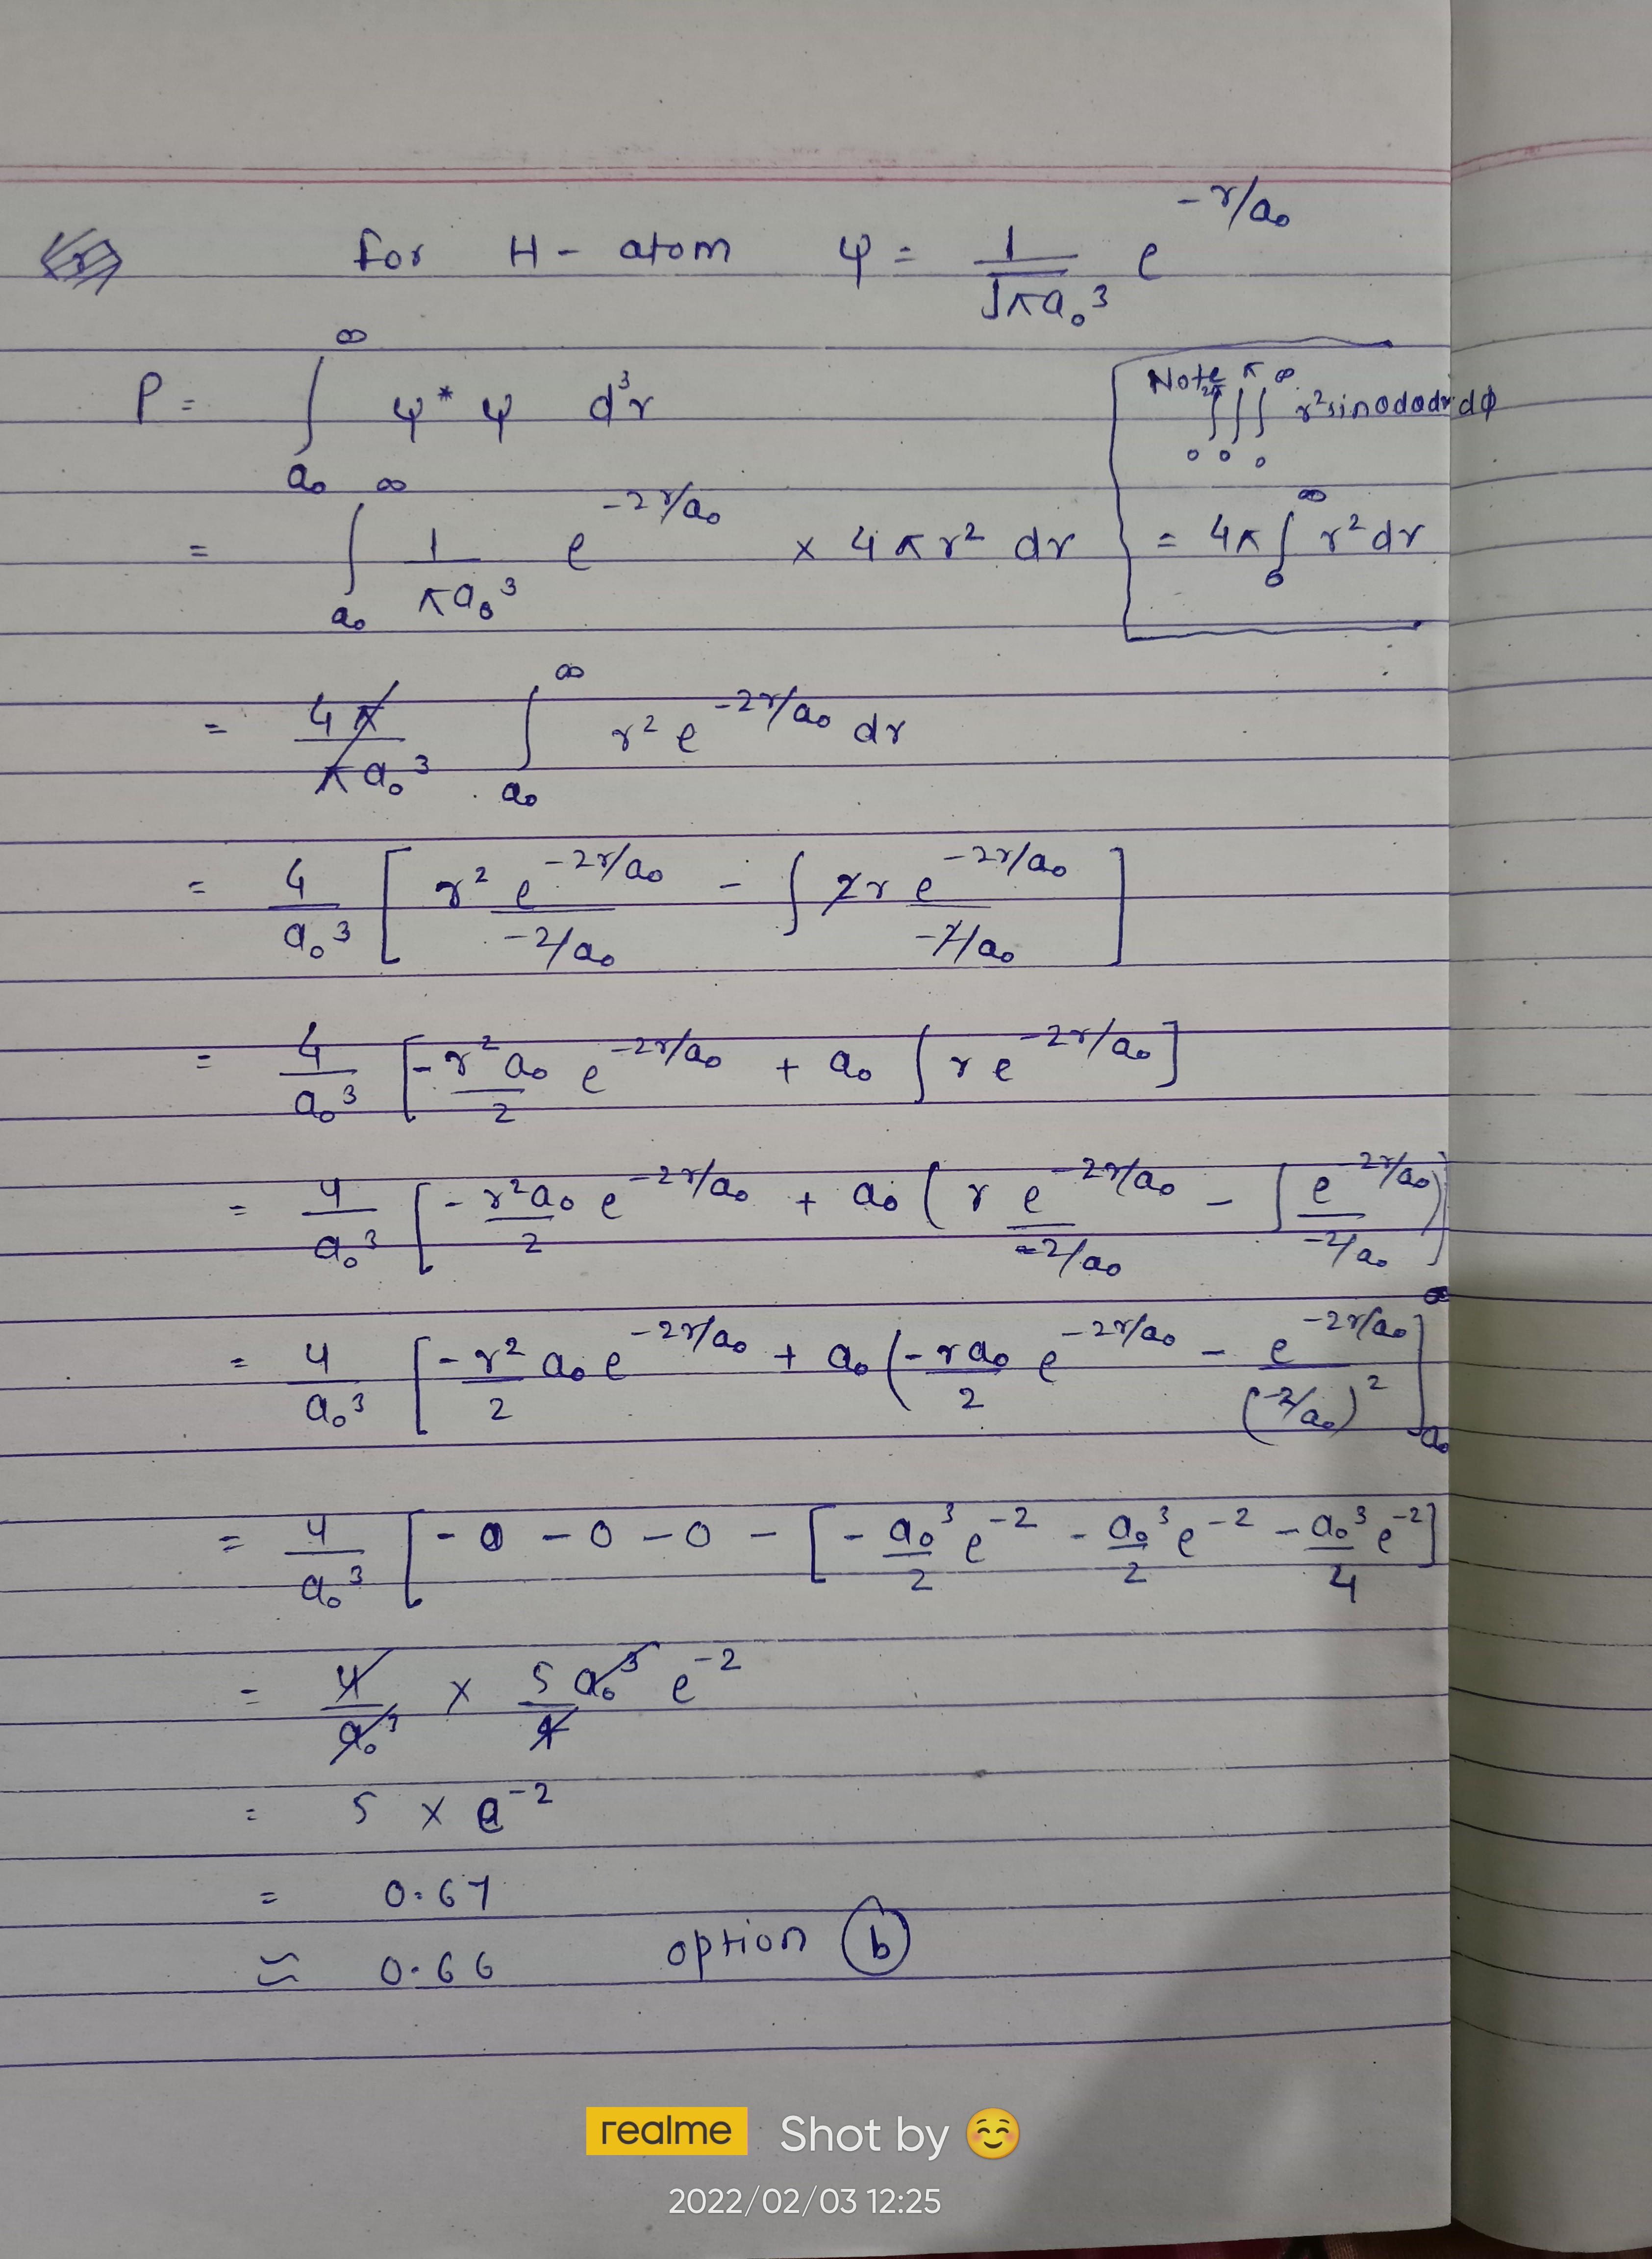 for H- atom ψ = 1/√πa₀³ e^(-r/a₀)
P = ∫_{a₀}^{∞} ψ* ψ d³r
Note ∫_0^{2π} ∫_0^{π} ∫_0^{∞} r² sinθ dθ dr dφ
= 4π ∫_0^{∞} r² dr
= ∫_{a₀}^{∞} 1/πa₀³ e^(-2r/a₀) × 4πr² dr
= 4π/πa₀³ ∫_{a₀}^{∞} r² e^(-2r/a₀) dr
= 4/a₀³ [ r² e^(-2r/a₀)/(-2/a₀) - ∫ 2r e^(-2r/a₀)/(-2/a₀) ]
= 4/a₀³ [ -r²a₀/2 e^(-2r/a₀) + a₀ ∫ r e^(-2r/a₀) ]
= 4/a₀³ [ -r²a₀/2 e^(-2r/a₀) + a₀ ( r e^(-2r/a₀)/(-2/a₀) - ∫ e^(-2r/a₀)/(-2/a₀) ) ]
= 4/a₀³ [ -r²/2 a₀ e^(-2r/a₀) + a₀ ( -ra₀/2 e^(-2r/a₀) - e^(-2r/a₀)/(-2/a₀)² ]_{a₀}^{∞}
= 4/a₀³ [ -0 - 0 - 0 - [ -a₀³/2 e^-2 - a₀³/2 e^-2 - a₀³/4 e^-2 ]
= 4/a₀³ × 5a₀³/4 e^-2
= 5 × e^-2
= 0.67
≈ 0.66 option (b)
realme Shot by ☺️
2022/02/03 12:25